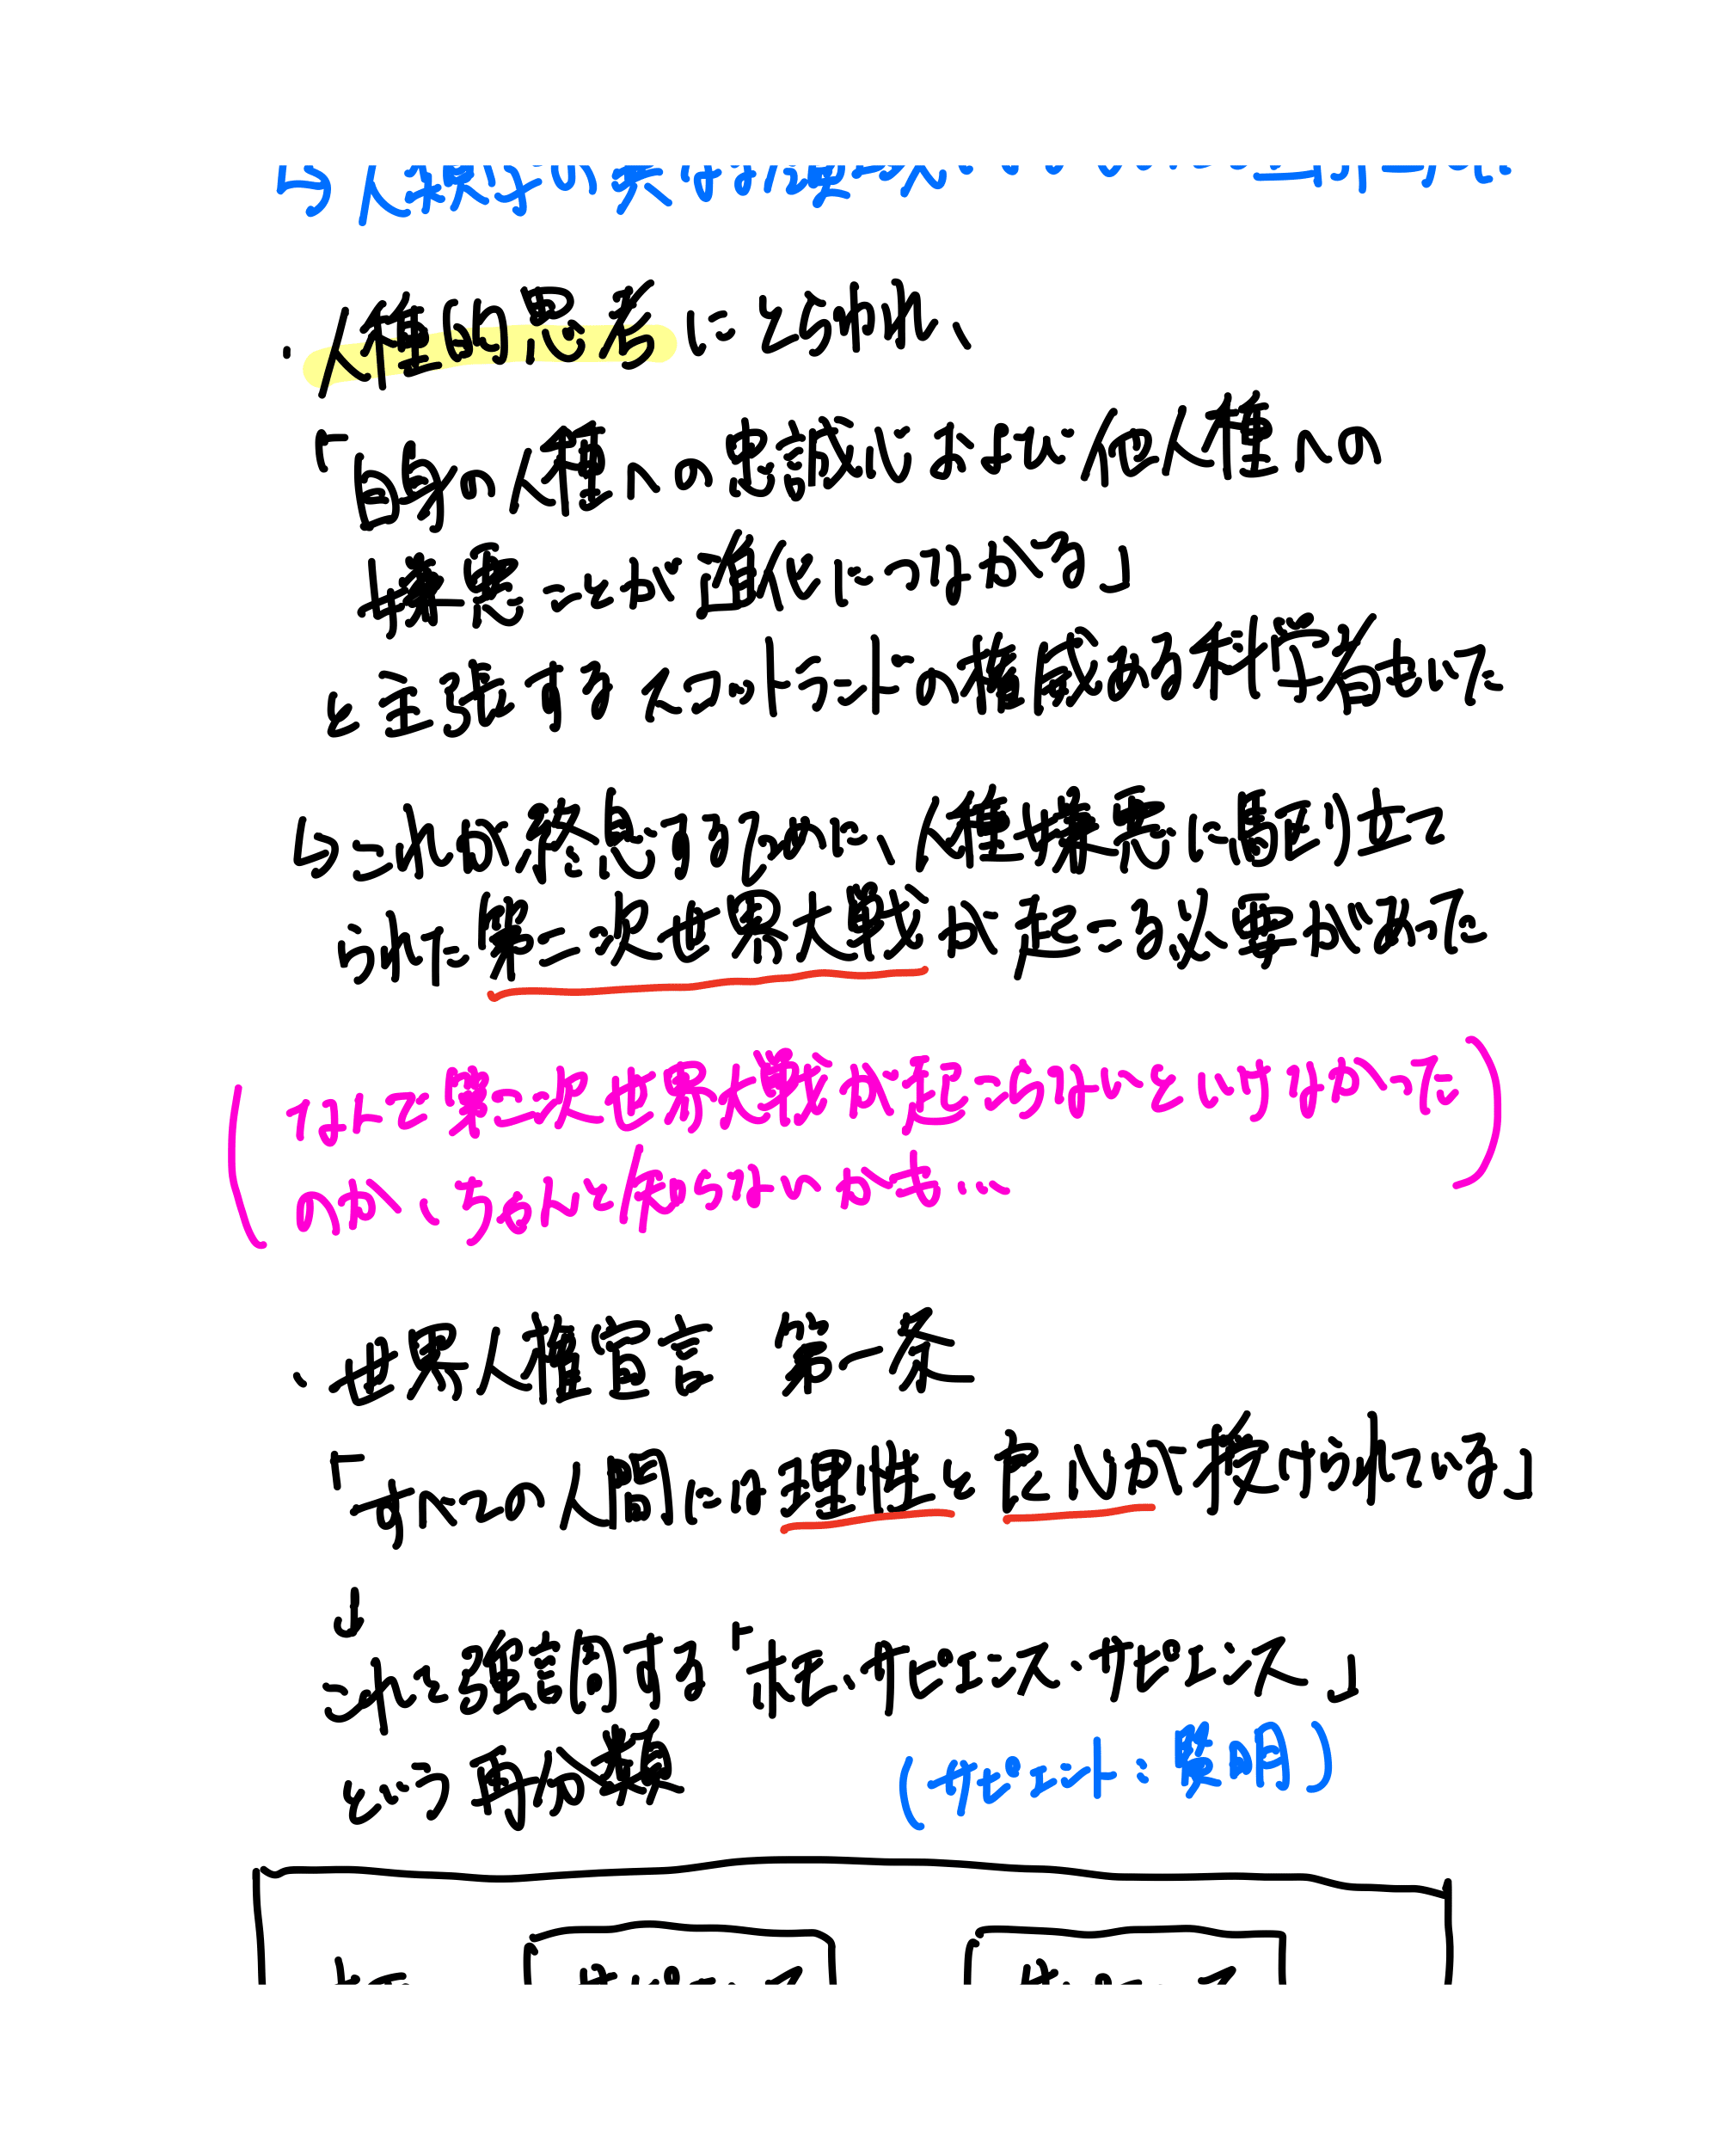 ・人種的思考にとらわれ、
「自身の人種への忠誠心および他人種への
憎悪こそが進化につながる」
と主張するスコットランドの権威ある科学者もいた
↳これが終息するために、人種憎悪に駆り立て
られた第二次世界大戦が起こる必要があった
(なんで第二次世界大戦が起こらないといけなかった
のか、ちゃんと知らないかも…)
・世界人権宣言 第一条
「すべての人間には理性と良心が授けられている」
↓
これを強調する「ホモ・サピエンス・サピエンス」
という再分類 (サピエント:聡明)